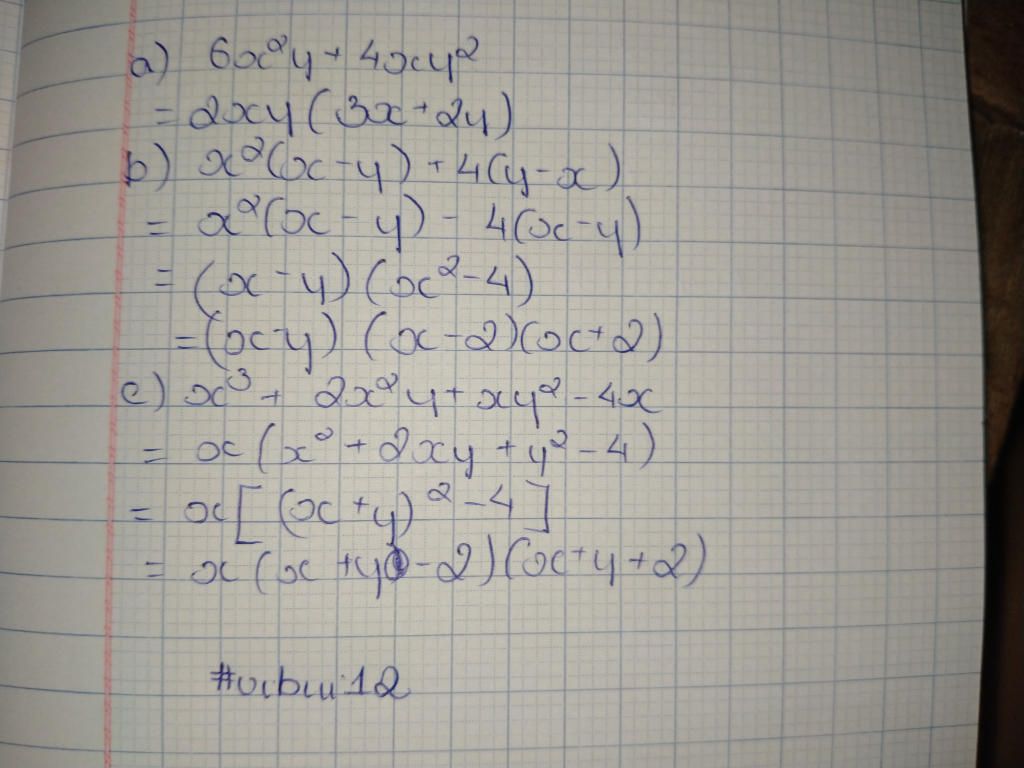 a) 6x²y + 4xy²
= 2xy (3x + 2y)
b) x²(x - y) + 4(y - x)
= x²(x - y) - 4(x - y)
= (x - y) (x² - 4)
= (x - y) (x - 2)(x + 2)
c) x³ + 2x²y + xy² - 4x
= x (x² + 2xy + y² - 4)
= x [ (x + y)² - 4 ]
= x (x + y - 2) (x + y + 2)